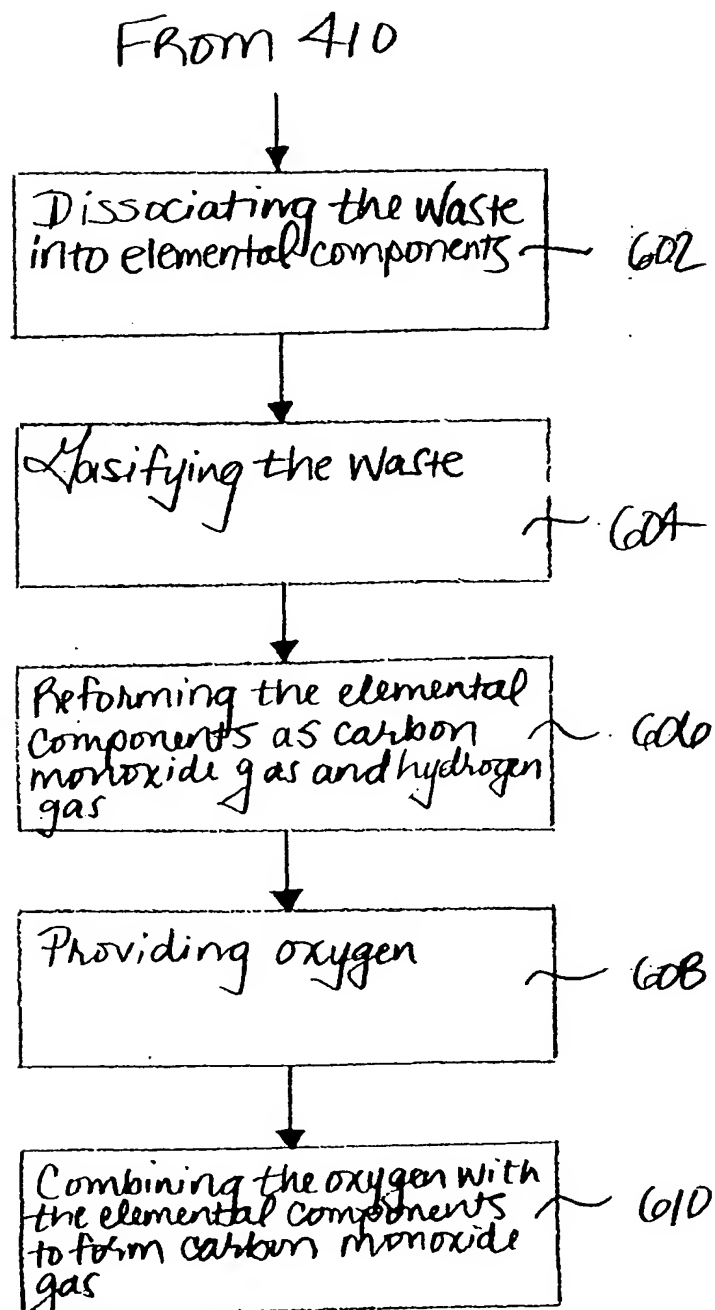 From 410
Dissociating the Waste
into elemental components
602
Gasifying the Waste
604
Reforming the elemental
components as carbon
monoxide gas and hydrogen
gas
606
Providing oxygen
608
Combining the oxygen with
the elemental components
to form carbon monoxide
gas
610